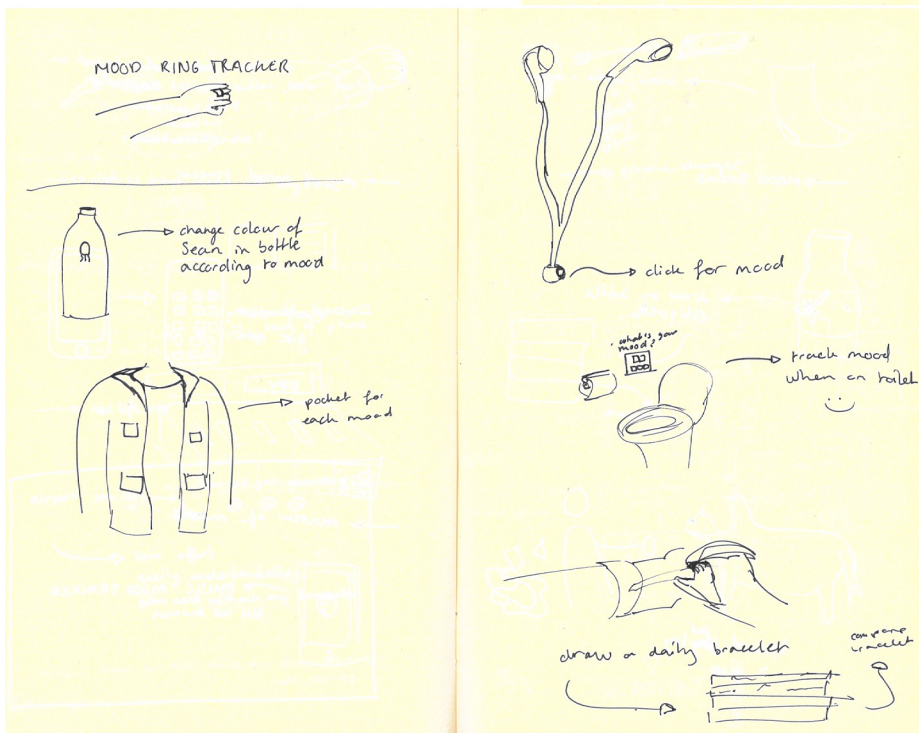 MOOD RING TRACKER
change colour of
Sean in bottle
according to mood
pocket for
each mood
click for mood
what's your
mood?
track mood
when on toilet
draw a daily bracelet
compare
bracelet